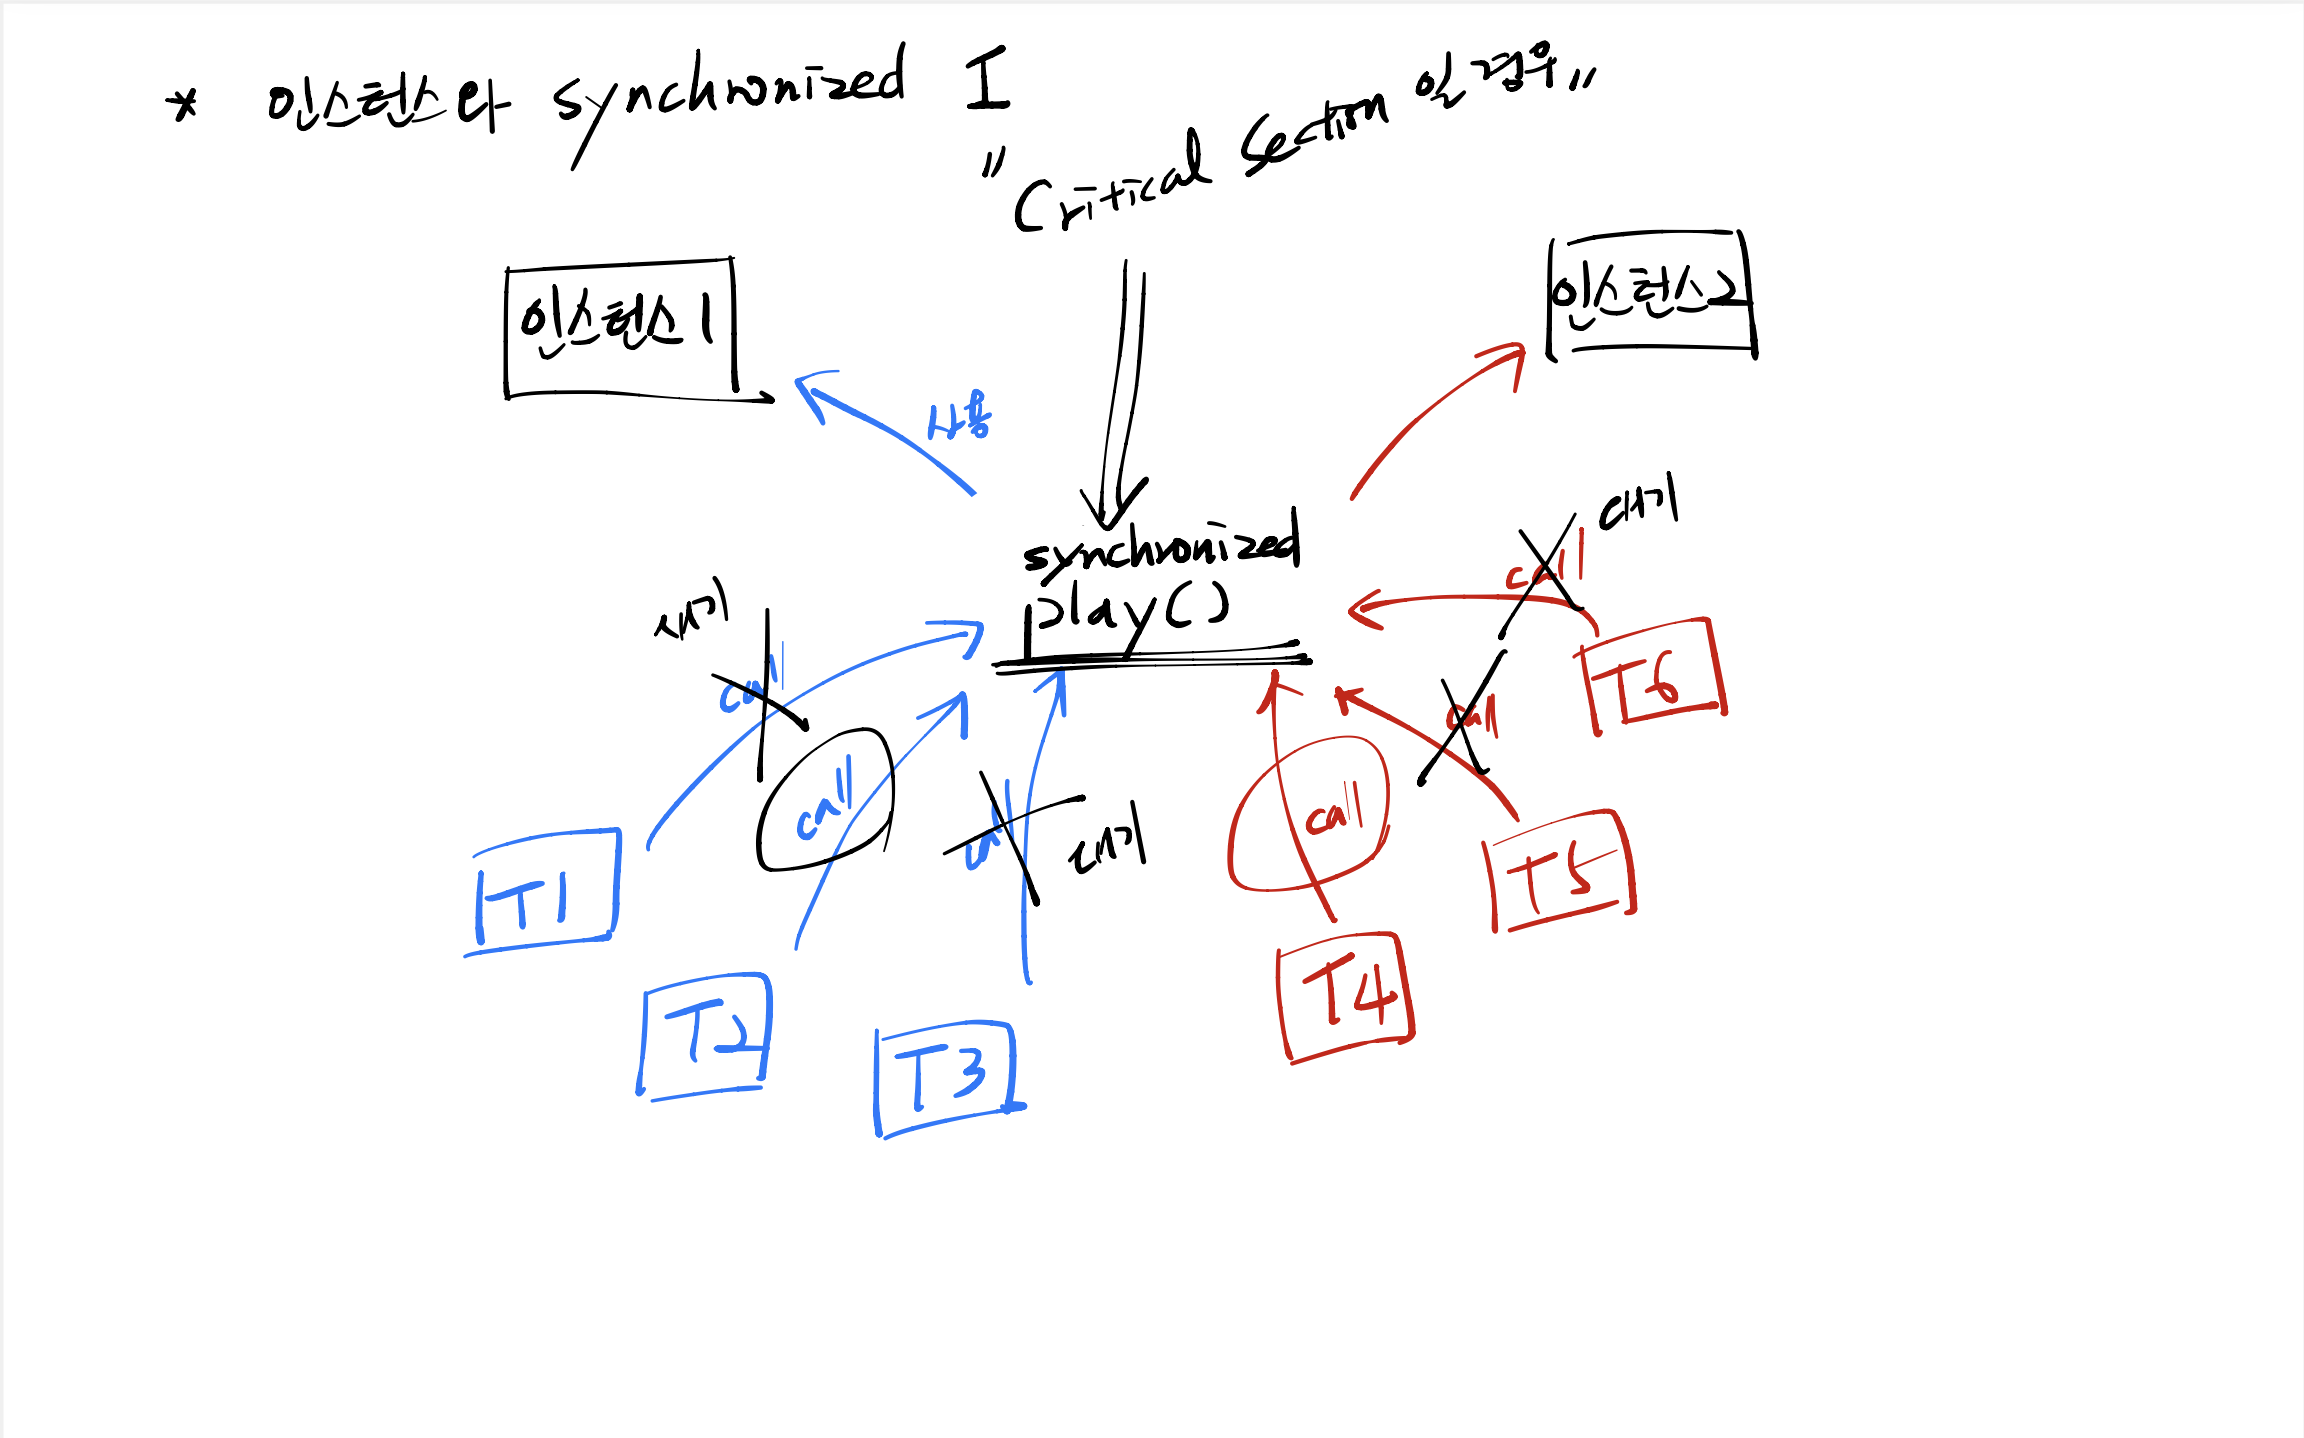 * 인스턴스와 synchronized I
"Critical Section 일 경우"
인스턴스1
인스턴스2
사용
synchronized
play()
대기
call
call
call
대기
call
call
call
대기
T1
T2
T3
T4
T5
T6